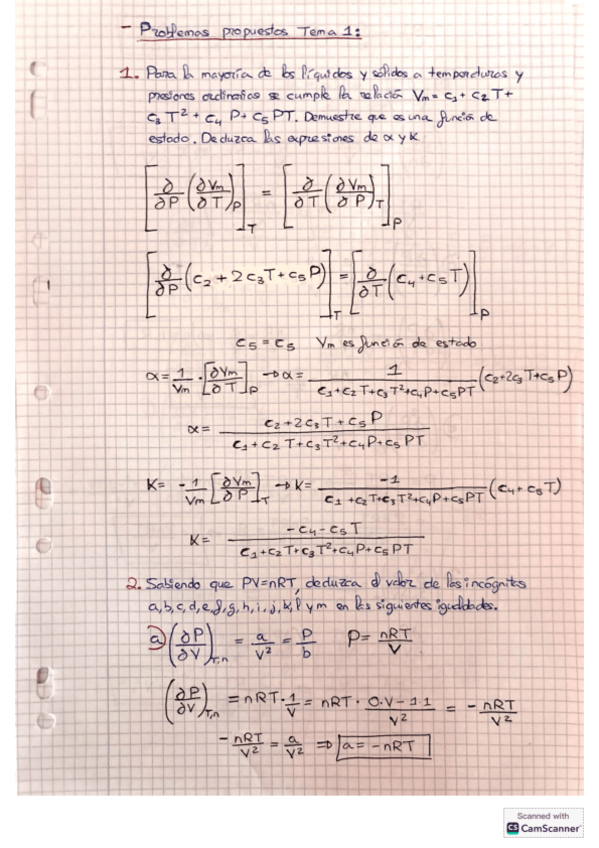 - Problemas propuestos Tema 1:
1. Para la mayoría de los líquidos y sólidos a temperaturas y
presiones ordinarias se cumple la relación Vm = c1 + c2 T +
c3 T² + c4 P + c5 PT. Demuestre que es una función de
estado. Deduzca las expresiones de α y K
[∂/∂P (∂Vm/∂T)P]T = [∂/∂T (∂Vm/∂P)T]P
[∂/∂P (c2 + 2c3T + c5P)]T = [∂/∂T (c4 + c5T)]P
c5 = c5 Vm es función de estado
α = 1/Vm · [∂Vm/∂T]P → α = 1/(c1 + c2T + c3T² + c4P + c5PT) (c2 + 2c3T + c5P)
α = (c2 + 2c3T + c5P)/(c1 + c2T + c3T² + c4P + c5PT)
K = -1/Vm [∂Vm/∂P]T → K = -1/(c1 + c2T + c3T² + c4P + c5PT) (c4 + c5T)
K = (-c4 - c5T)/(c1 + c2T + c3T² + c4P + c5PT)
2. Sabiendo que PV=nRT, deduzca el valor de las incógnitas
a, b, c, d, e, f, g, h, i, j, k, l y m en las siguientes igualdades.
a) (∂P/∂V)T,n = a/V² = P/b P = nRT/V
(∂P/∂V)T,n = nRT · 1/V = nRT · (0·V - 1·1)/V² = - nRT/V²
- nRT/V² = a/V² ⇒ a = -nRT
Scanned with
CS CamScanner